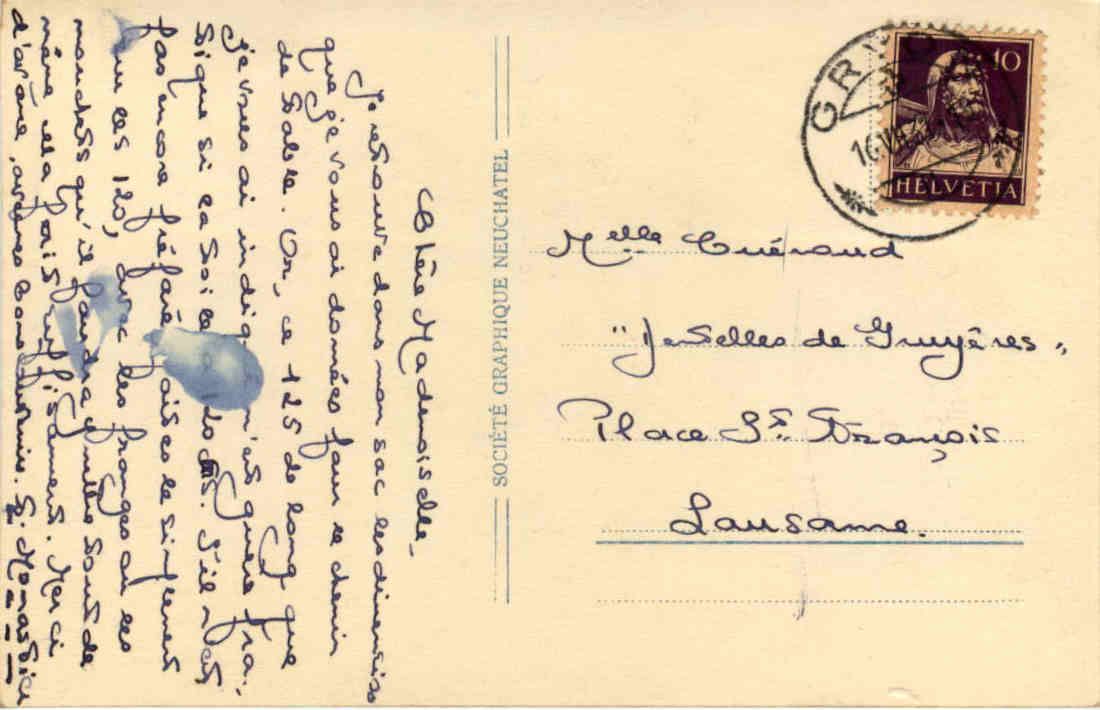 Chère Mademoiselle,
Je retrouve dans mon sac les dimensions
que je vous ai données pour le chemin
de table. Or, ce 125 de long que
je vous ai indiqué n'est guère pra-
tique si la toile a 120 S'il n'est
pas encore préparé faites le simplement
sur les 120, avec les franges ou les
mouchets qu'il faudra
même suffisamment. Merci
d'avance, bons souvenirs. S. Monastier
SOCIÉTÉ GRAPHIQUE NEUCHATEL
GRYON
16.VII
10
HELVETIA
Melle Guéraud
"Dentelles de Gruyères"
Place St. François
Lausanne.